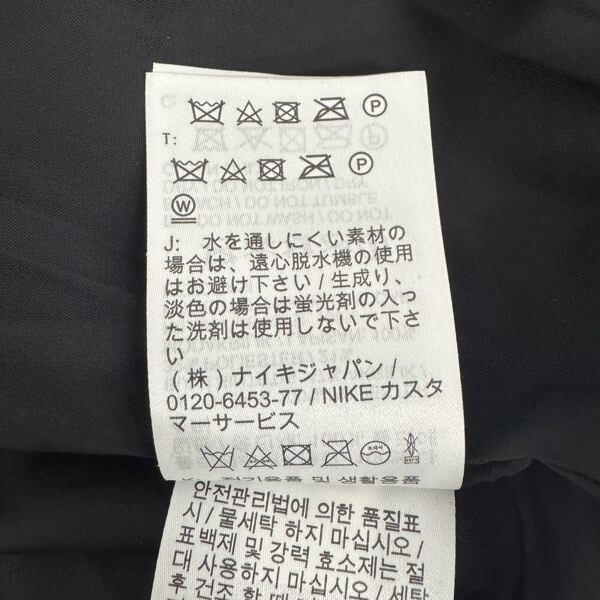 P
T:
P
W
J: 水を通しにくい素材の
場合は、遠心脱水機の使用
はお避け下さい / 生成り、
淡色の場合は蛍光剤の入っ
た洗剤は使用しないで下さ
い
(株) ナイキジャパン /
0120-6453-77 / NIKE カスタ
マーサービス
전기용품 및 생활용품
안전관리법에 의한 품질표
시 / 물세탁 하지 마십시오 /
표백제 및 강력 효소제는 절
대 사용하지 마십시오 /
후 건조 할 때